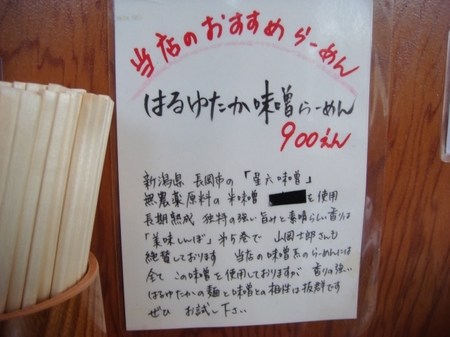 当店のおすすめらーめん
はるゆたか味噌らーめん
900えん
新潟県 長岡市の「星六味噌」
無農薬原料の米味噌 を使用
長期熟成 独特の強い旨みと素晴らしい香りは
「美味しんぼ」第5巻で 山岡士郎さんも
絶賛しております 当店の味噌系のらーめんには
全て この味噌を使用しておりますが 香りの強い
はるゆたかの麺と味噌との相性は抜群です
ぜひ お試し下さい